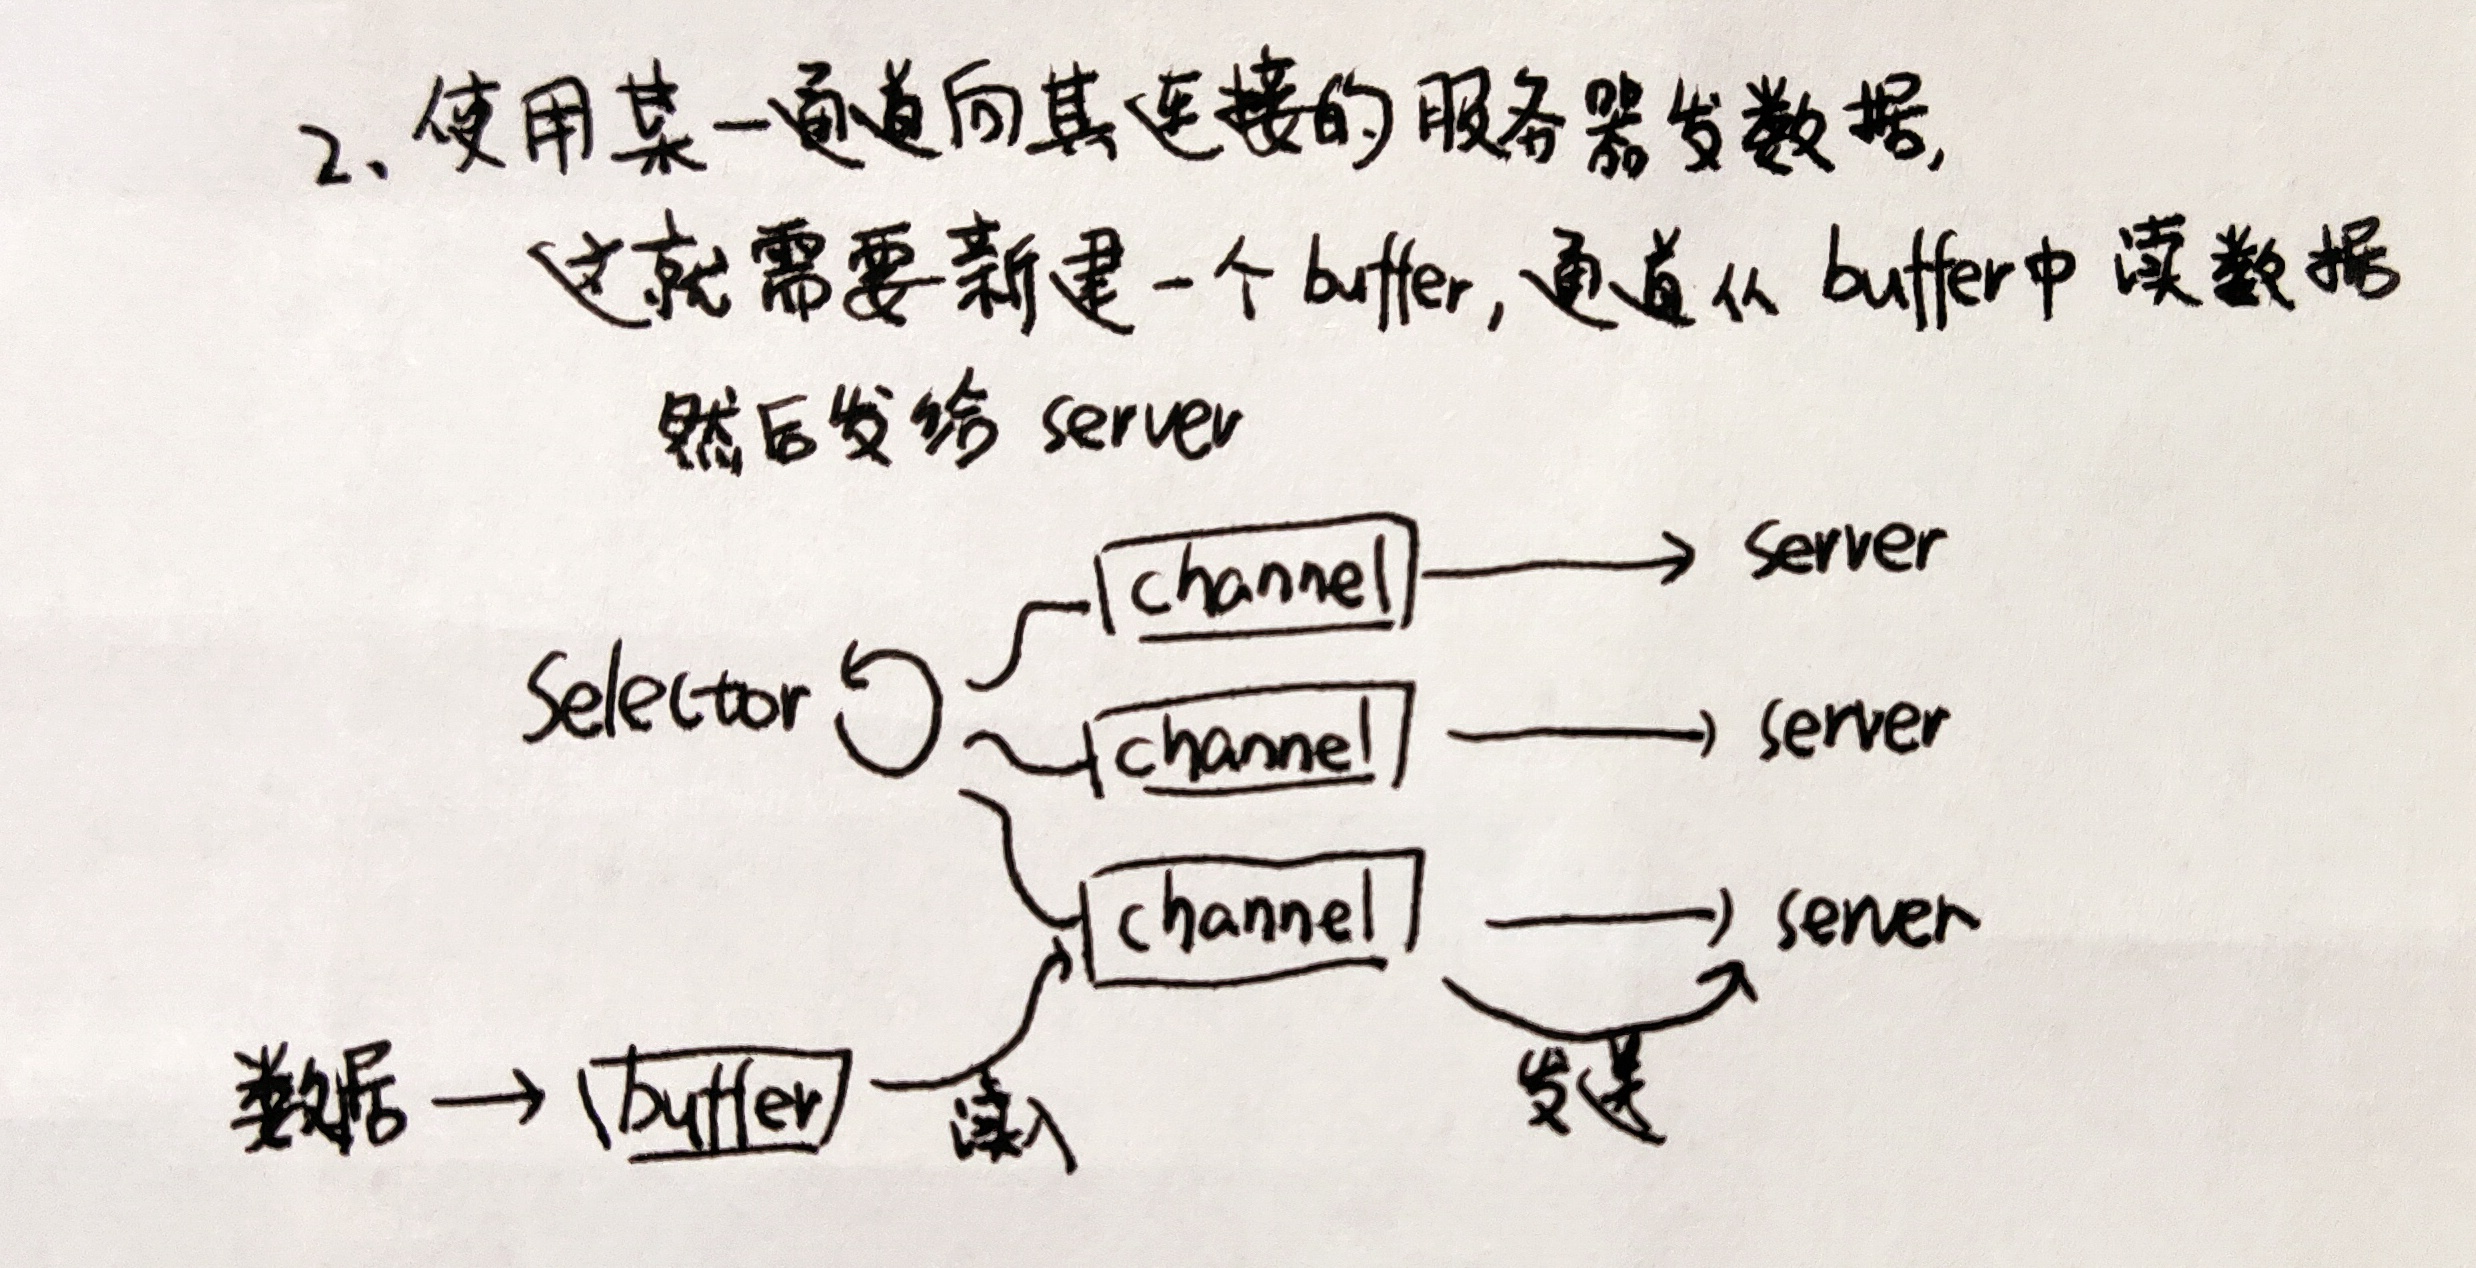 2、使用某一通道向其连接的服务器发数据,
这就需要新建一个buffer,通道从buffer中读数据
然后发给server
channel
server
Selector
channel
server
channel
server
数据
buffer
读入
发送